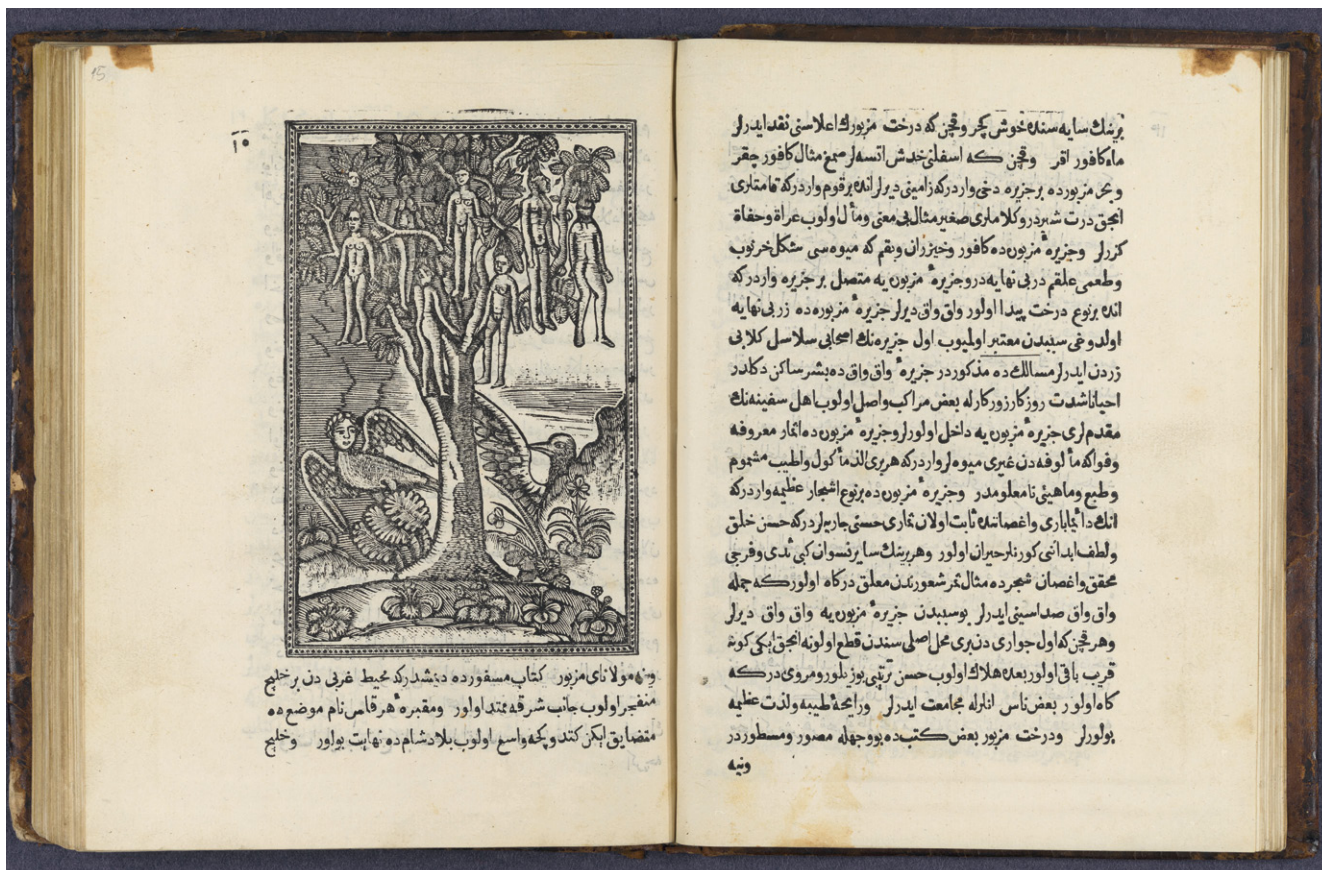 برينك سايه سنده خوش كچر وقچن كه درخت مزبورك اعلاسنى نقد ايدرلر
ماء كافور اقر وقچن كه اسفلنى خدش اتسه لر صمغ مثال كافور چقر
و بحر مزبورده بر جزيره دخى واردر كه زامينى ديرلر انده بر قوم واردر كه قامتلرى
انجق درت شبردر وكلاملرى صفير مثال بى معنى ومأل اولوب عراة وحفاة
كزرلر وجزيرۀ مزبورده كافور وخيزران وبقم كه ميوه سى شكل خرنوب
وطعمى علقم در بى نهايه در وجزيرۀ مزبوره يه متصل بر جزيره واردر كه
انده بر نوع درخت پيدا اولور واق واق ديرلر جزيرۀ مزبوره ده زر بى نهايه
اولدوغى سببدن معتبر اولميوب اول جزيره نك اصحابى سلاسل كلابى
زردن ايدرلر مسالك ده مذكوردر جزيرۀ واق واق ده بشر ساكن دكلدر
احيانا شدت روزكار زوركارله بعض مراكب واصل اولوب اهل سفينه نك
مقدملرى جزيرۀ مزبوره يه داخل اولورلر وجزيرۀ مزبوره ده اثمار معروفه
وفواكه مألوفه دن غيرى ميوه لر واردر كه هر برى الذ مأكول واطيب مشموم
وطبع وماهيتى نامعلومدر وجزيرۀ مزبوره ده بر نوع اشجار عظيمه واردر كه
انك دائما بارى واغصاننده ثابت اولان ثمارى حسنى جاريه لردر كه حسن خلق
ولطف ابداننى كورنلر حيران اولور وهر برينك ساير نسوان كبى ثدى وفرجى
محقق واغصان شجرده مثال ثمر شعورندن معلق در كاه اولور كه جمله
واق واق صداسينى ايدرلر بو سببدن جزيرۀ مزبوره يه واق واق ديرلر
وهر قچن كه اول جوارى دن برى محل اصلى سندن قطع اولونه انجق ايكى كونه
قريب باقى اولور بعده هلاك اولوب حسن ترتيبى بوزيلور ومروى در كه
كاه اولور بعض ناس انلرله مجامعت ايدرلر ورايحۀ طيبه ولذت عظيمه
بولورلر ودرخت مزبور بعض كتب ده بو وجهله مصور ومسطوردر
ونيه
15
۱۵
مولاناى مزبور كتاب مسفورده ديمشدر كه محيط غربى دن بر خليج
منفجر اولوب جانب شرقه ممتد اولور ومقبرۀ هرقلس نام موضع ده
متضايق ايكن كتدوكجه واسع اولوب بلاد شام ده نهايت بولور وخليج